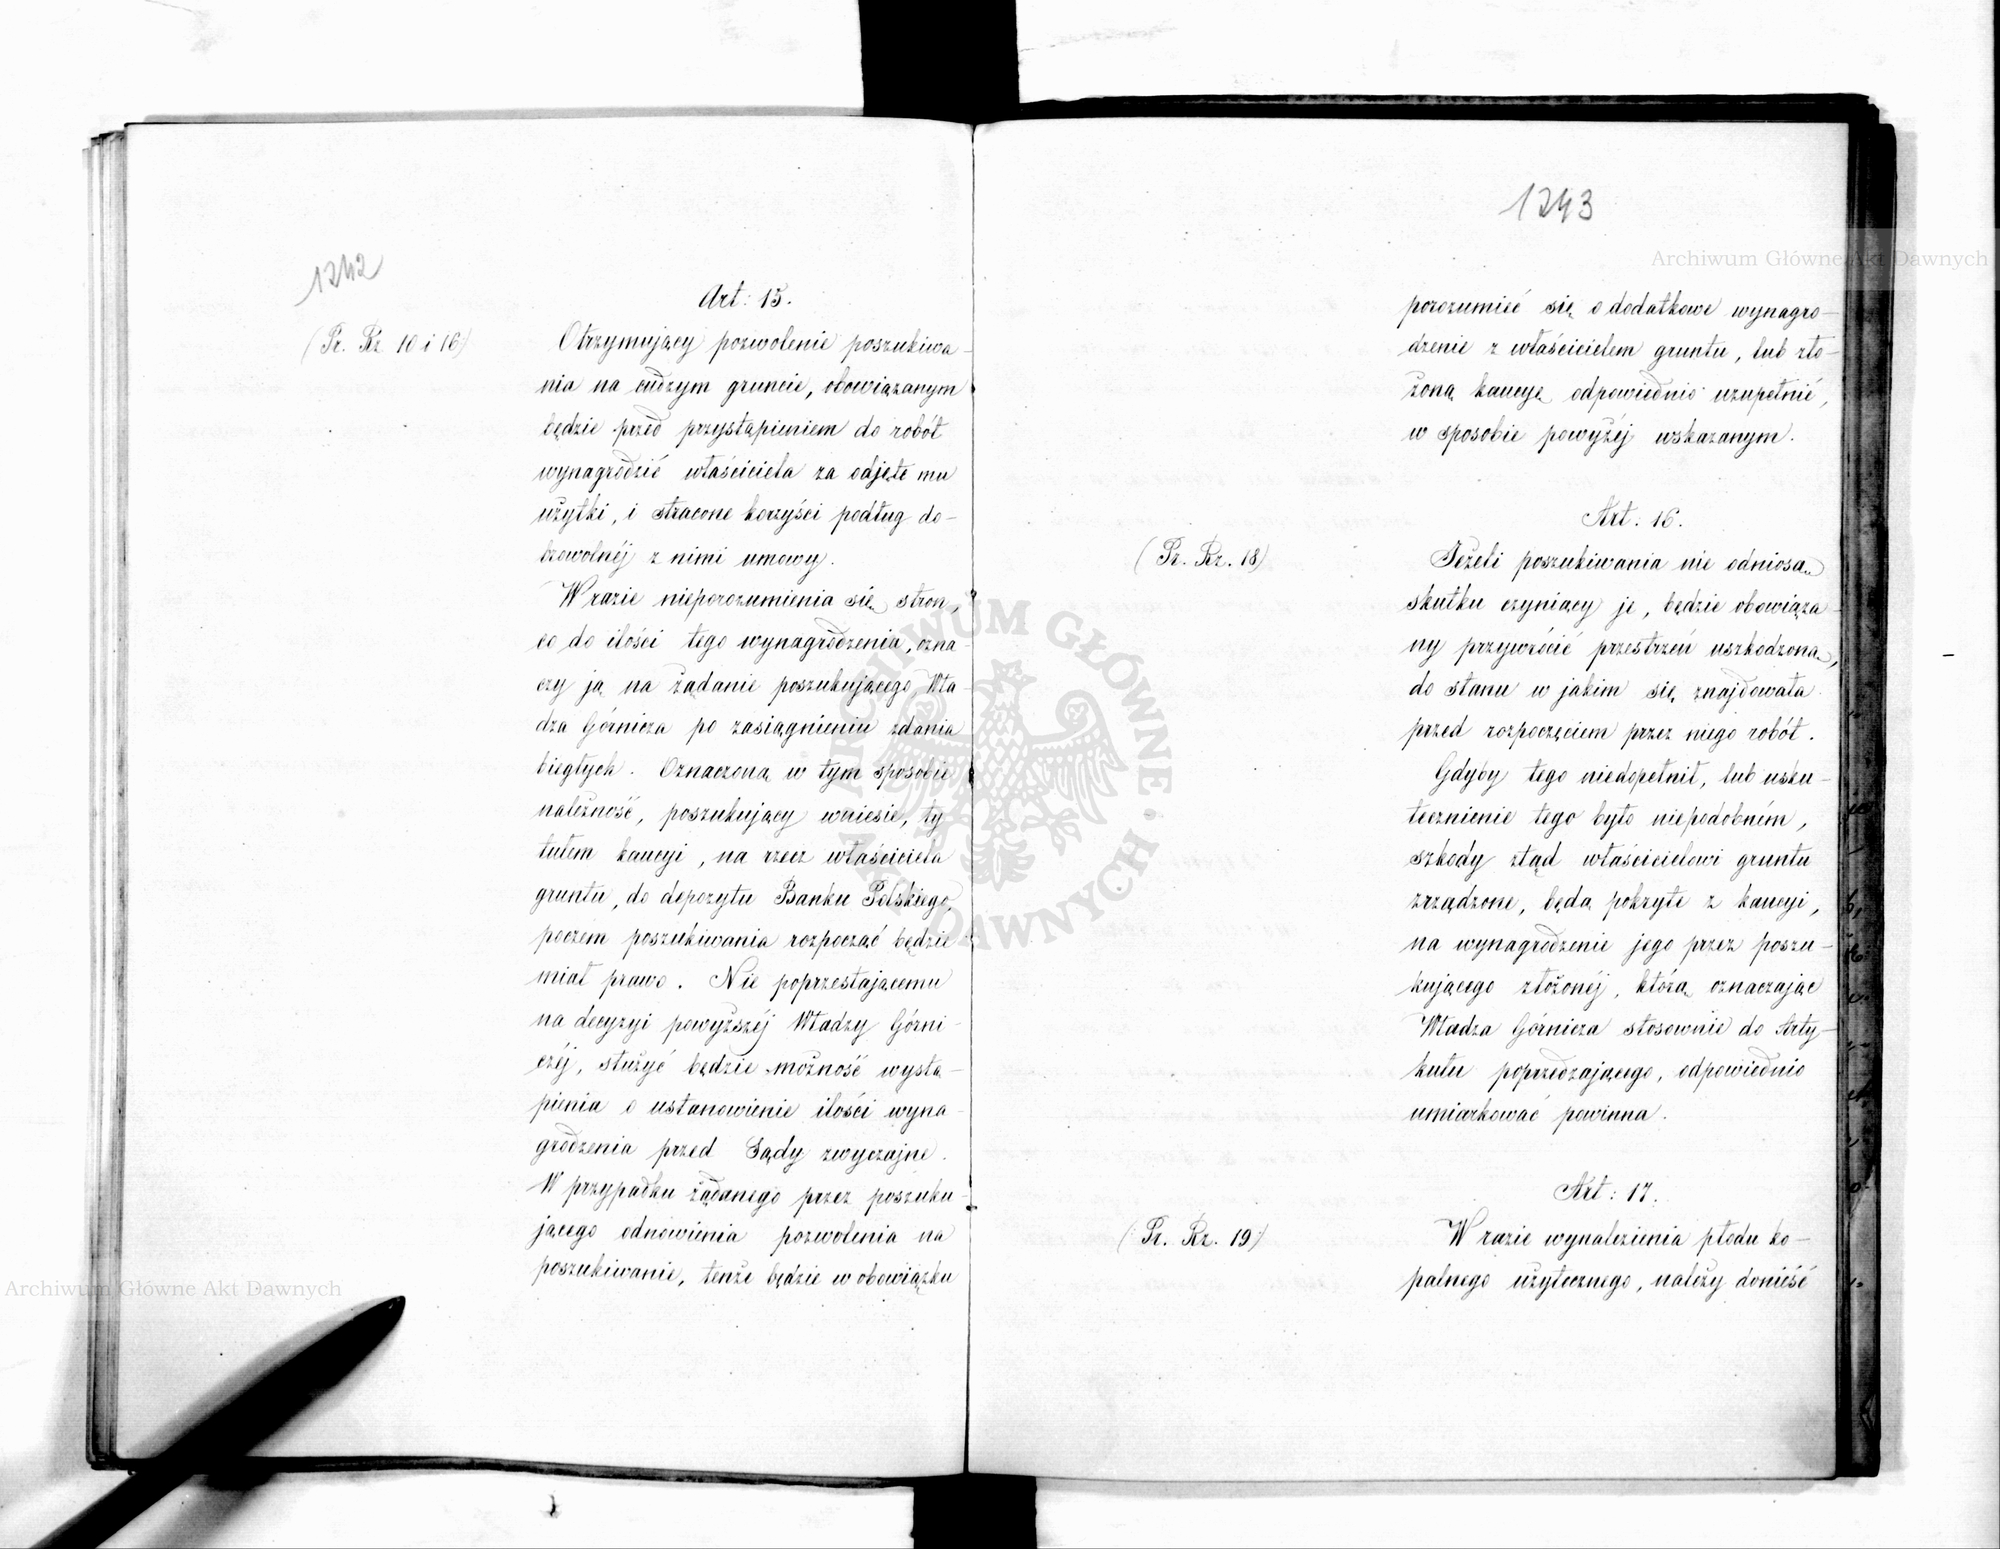 1242
Art: 15.
(Pr. Rz 10 i 16)
Otrzymujący pozwolenie poszukiwa-
nia na cudzym gruncie, obowiązanym
będzie przed przystąpieniem do robót
wynagrodzić właściciela za odjęte mu
użytki, i stracone korzyści podług do-
browolnéj z nimi umowy.
W razie nieporozumienia się stron,
co do ilości tego wynagrodzenia, ozna-
czy ją na żądanie poszukującego Wła-
dza Górnicza po zasiągnieniu zdania
biegłych. Oznaczoną w tym sposobie
należność, poszukujący wniesie, ty
tułem kaucyi, na rzecz właściciela
gruntu, do depozytu Banku Polskiego,
poczem poszukiwania rozpocząć będzie
miał prawo. Nie poprzestającemu
na decyzyi powyższéj Władzy Górni-
czéj, służyć będzie możność wystą-
pienia o ustanowienie ilości wyna-
grodzenia przed Sądy zwyczajne.
W przypadku żądanego przez poszuku-
jącego odnowienia pozwolenia na
poszukiwanie, tenże będzie w obowiązku
1243
porozumieć się o dodatkowe wynagro-
dzenie z właścicielem gruntu, lub zło-
żoną kaucyę odpowiednio uzupełnić,
w sposobie powyżéj wskazanym.
Art: 16.
(Pr. Rz. 18)
Jeżeli poszukiwania nie odniosą
skutku czyniący je, będzie obowiąza-
ny przywrócić przestrzeń uszkodzoną,
do stanu w jakim się znajdowała
przed rozpoczęciem przez niego robót.
Gdyby tego niedopełnił, lub usku-
tecznienie tego było niepodobném,
szkody ztąd właścicielowi gruntu
zrządzone, będą pokryte z kaucyi,
na wynagrodzenie jego przez poszu-
kującego złożonéj, którą oznaczając
Władza Górnicza stosownie do Arty-
kułu poprzedzającego, odpowiednio
umiarkować powinna.
Art: 17.
(Pr. Rz. 19)
W razie wynalezienia płodu ko-
palnego użytecznego, należy donieść
Archiwum Główne Akt Dawnych
Archiwum Główne Akt Dawnych
ARCHIWUM GŁÓWNE AKT DAWNYCH